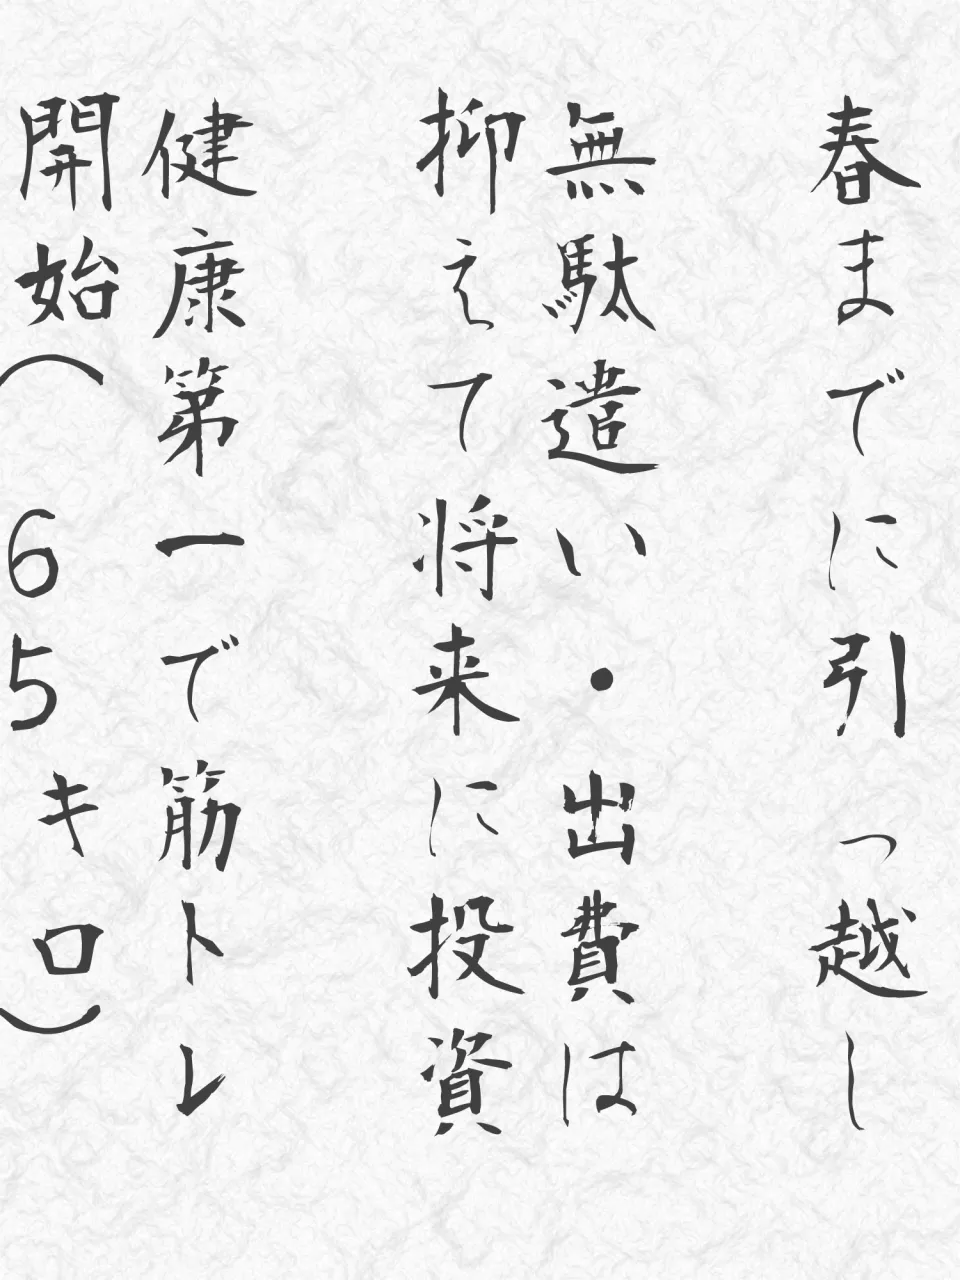 春までに引っ越し
無駄遣い・出費は
抑えて将来に投資
健康第一で筋トレ
開始(65キロ)